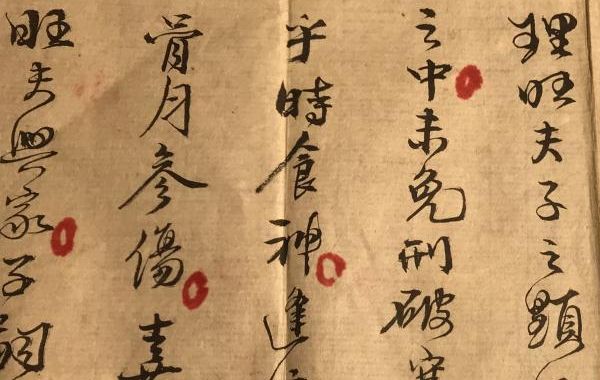 理旺夫子之顯
之中未免刑破
乎時食神逢
骨月參傷
旺夫興家子嗣